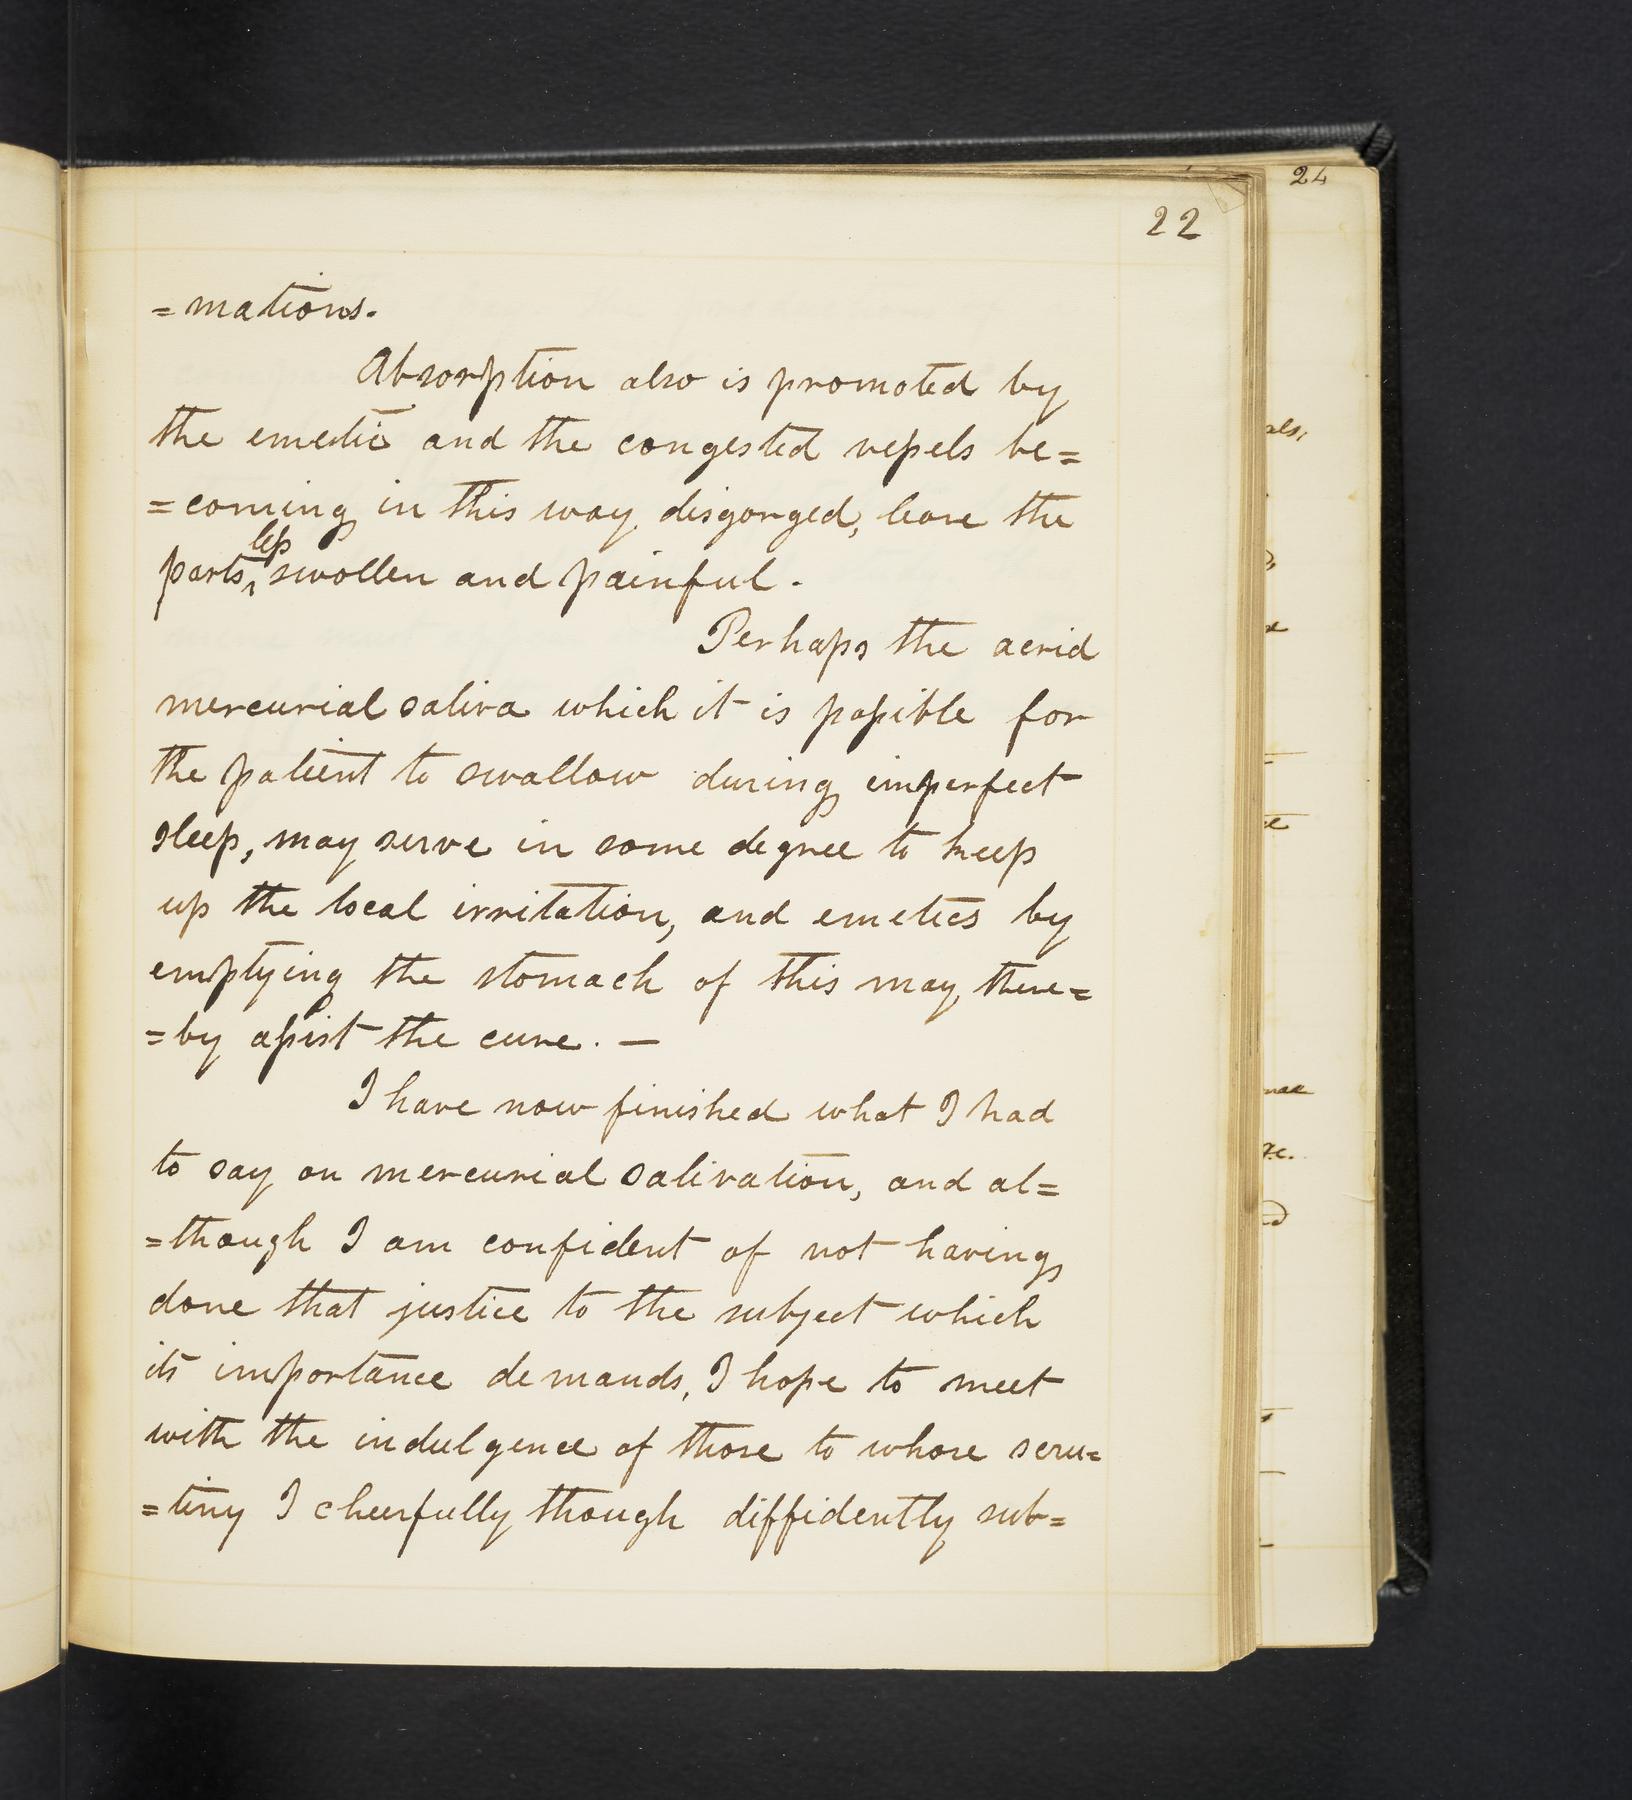 22
24
=mations.
Absorption also is promoted by
the emetic and the congested veſsels be=
=coming in this way disgorged, leave the
leſs
parts, swollen and painful.
Perhaps the acrid
mercurial saliva which it is poſsible for
the patient to swallow during imperfect
sleep, may serve in some degree to keep
up the local irritation, and emetics by
emptying the stomach of this may, there=
=by aſsist the cure. —
I have now finished what I had
to say on mercurial salivation, and al=
=though I am confident of not having
done that justice to the subject which
its importance demands, I hope to meet
with the indulgence of those to whose scru=
=tiny I cheerfully though diffidently sub=